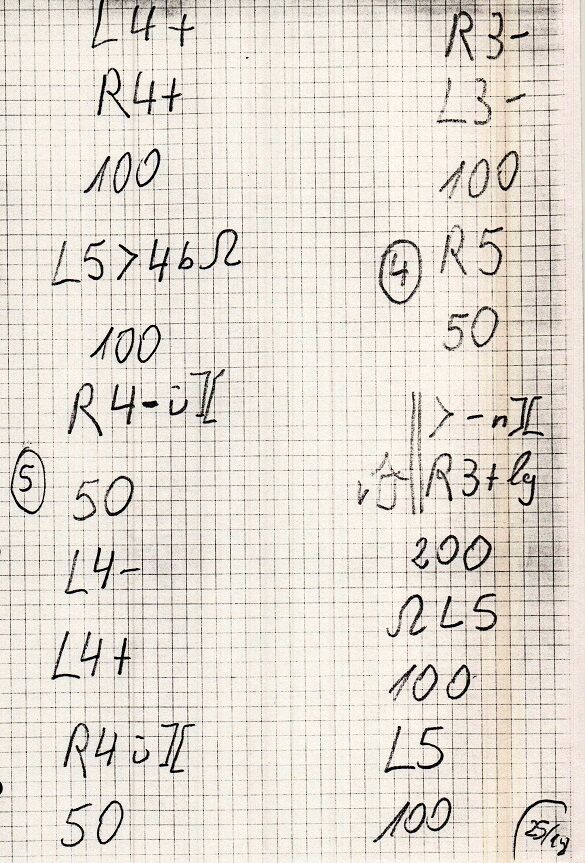 L4+
R4+
100
L5>4bΩ
100
R4-ü][
5
50
L4-
L4+
R4ü][
50
R3-
L3-
100
4 R5
50
>-n][
R3+lg
200
ΩL5
100
L5
100